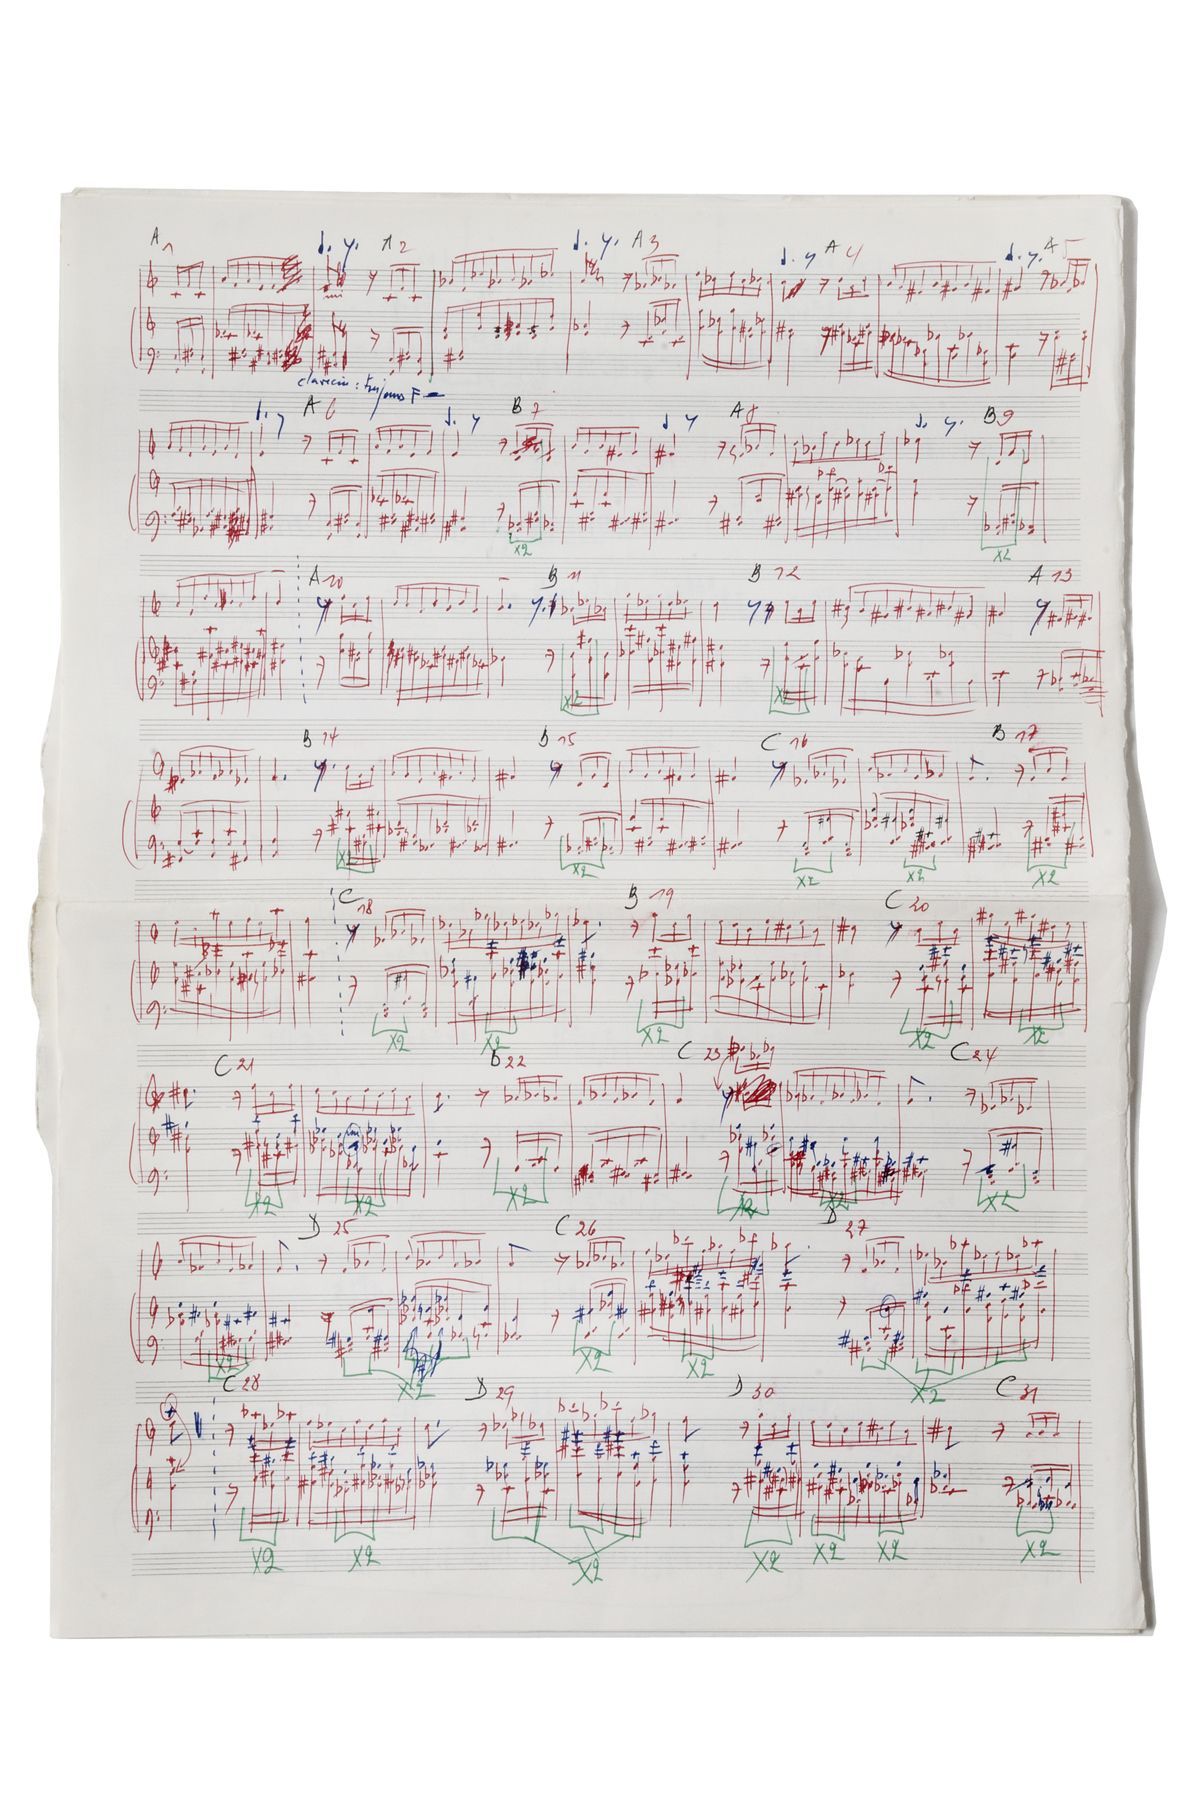 A 1 A 2 A 3 A 4 A 5
clavecin : toujours F
A 6 B 7 A 8 B 9
x2 x2
A 10 B 11 B 12 A 13
x2 x2
B 14 B 15 C 16 B 17
x2 x2 x2 x2 x2
C 18 B 19 C 20
x2 x2 x2 x2 x2
C 21 B 22 C 23 C 24
x2 x2 x2 x2 x2 x2
D 25 C 26 D 27
x2 x2 x2 x2 x2
C 28 D 29 D 30 C 31
x2 x2 x2 x2 x2 x2 x2